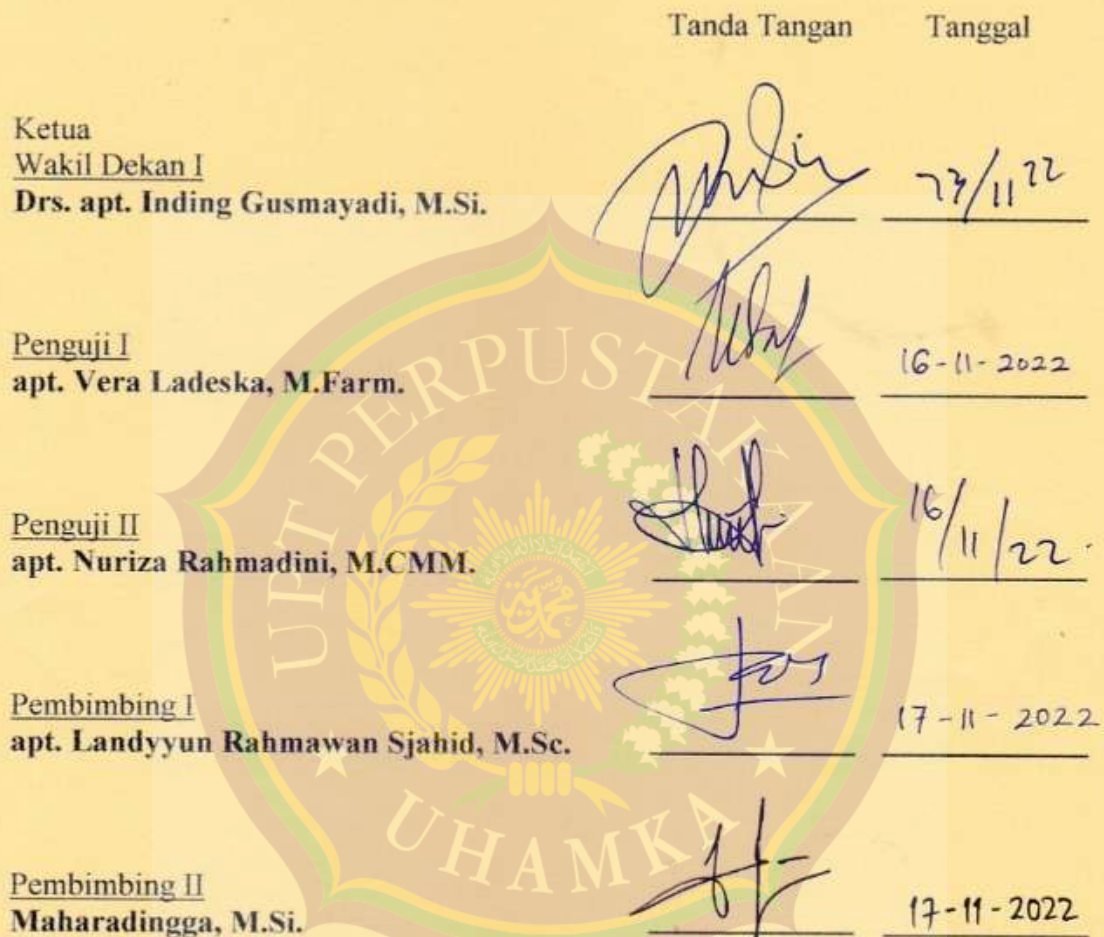 Tanda Tangan Tanggal
Ketua
Wakil Dekan I
Drs. apt. Inding Gusmayadi, M.Si.
23/11 22
Penguji I
apt. Vera Ladeska, M.Farm.
16-11-2022
Penguji II
apt. Nuriza Rahmadini, M.CMM.
16/11/22
Pembimbing I
apt. Landyyun Rahmawan Sjahid, M.Sc.
17-11-2022
Pembimbing II
Maharadingga, M.Si.
17-11-2022
UPT PERPUSTAKAAN
UHAMKA